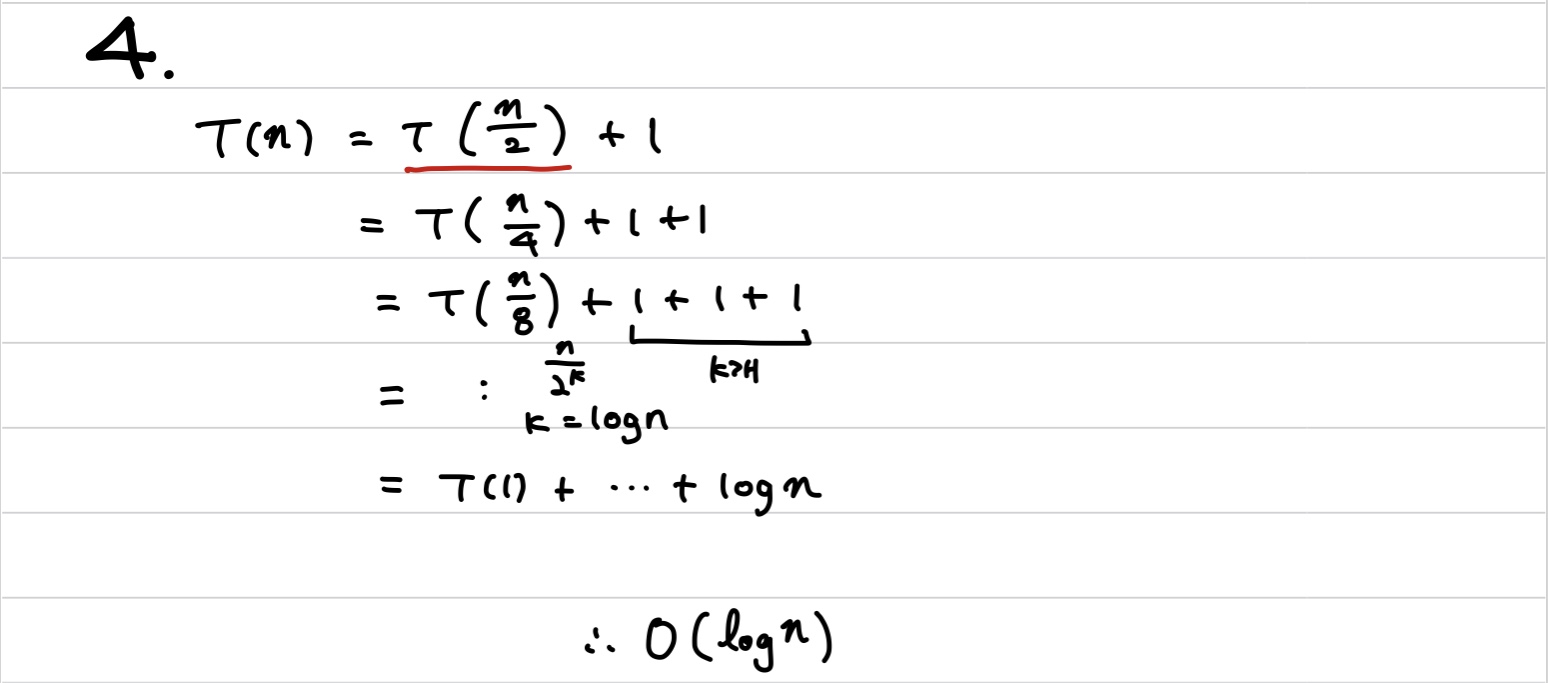 4.
T(n) = T(n/2) + 1
= T(n/4) + 1 + 1
= T(n/8) + 1 + 1 + 1
k개
= : n/2^k
k = log n
= T(1) + ... + log n
∴ O(log n)